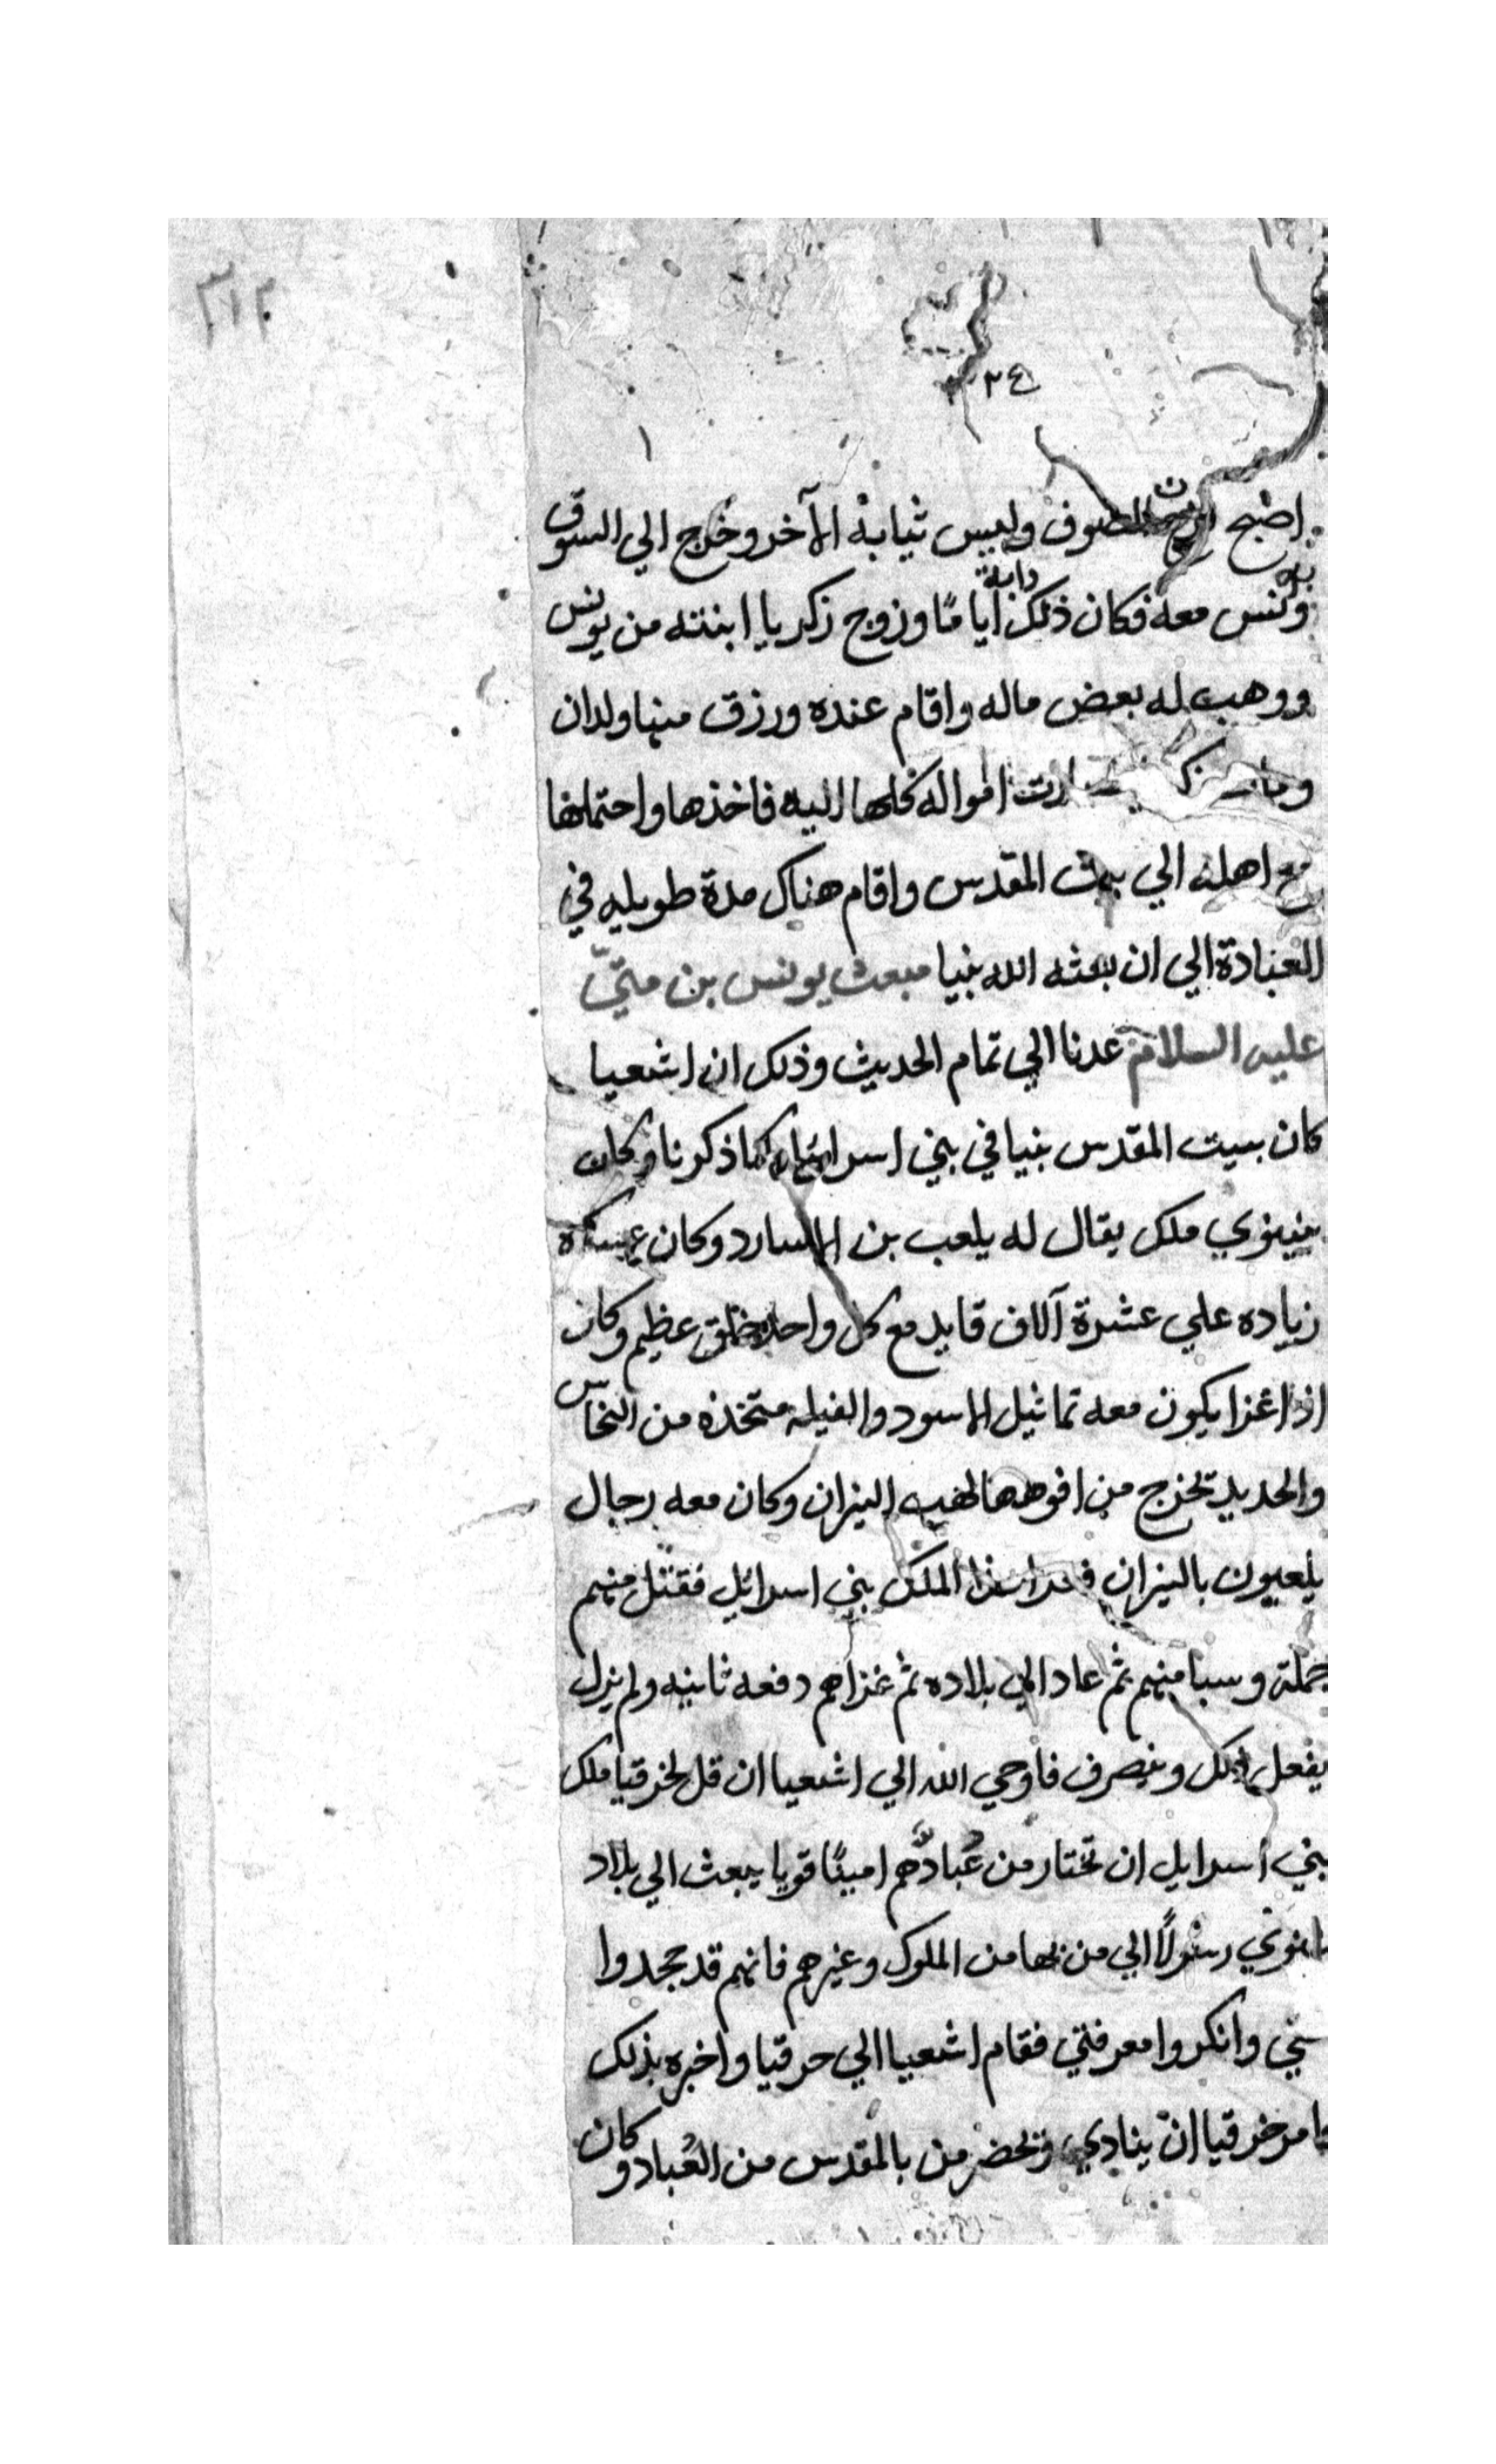 ٣١٢
٢٤
١
اصبح الصوف ولبس ثيابه الآخر وخرج الي السوق
ويونس معه فكان ذلك دابه أيامًا وزوج زكريا ابنته من يونس
ووهب له بعض ماله واقام عنده ورزق منها ولدان
ومات صارت امواله كلها اليه فاخذها واحتملها
مع اهله الي بيت المقدس واقام هناك مدة طويله في
العبادة الي ان بعثه الله نبيا مبعث يونس بن متّي
عليه السلام عدنا الي تمام الحديث وذلك ان اشعيا
كان ببيت المقدس نبيا في بني اسرائيل كما ذكرنا وكان
بنينوي ملك يقال له يلعب بن السارد وكان عسكره
زياده علي عشرة آلاف قايد مع كل واحد خلق عظيم وكان
اذا غزا يكون معه تماثيل الاسود والفيله متخذه من النحاس
والحديد تخرج من افوهها لهيب النيران وكان معه رجال
يلعبون بالنيران هذا الملك بني اسرائل فقتل منهم
جملة وسبا منهم ثم عاد الي بلاده ثم غزاهم دفعه ثانيه ولم يزل
يفعل ذلك وينصرف فاوحي الله الي اشعيا ان قل لحزقيا ملك
بني اسرايل ان تختار من عُبادهم امينًا قويا يبعث الي بلاد
نينوي رسولًا الي من بها من الملوك وغيرهم فانهم قد جحدوا
وانكروا معرفتي فقام اشعيا الي حزقيا واخبره بذلك
فامر حزقيا ان ينادي ويحضر من بالمقدس من العُباد وكان